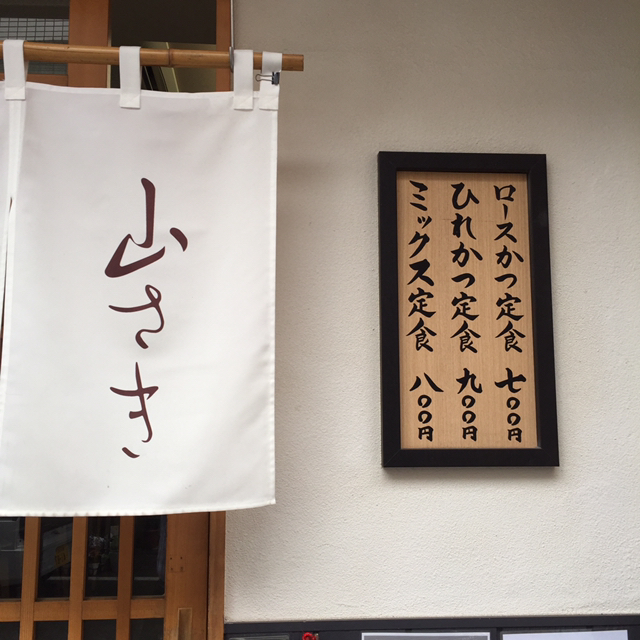 山さき
ロースかつ定食 七〇〇円
ひれかつ定食 九〇〇円
ミックス定食 八〇〇円